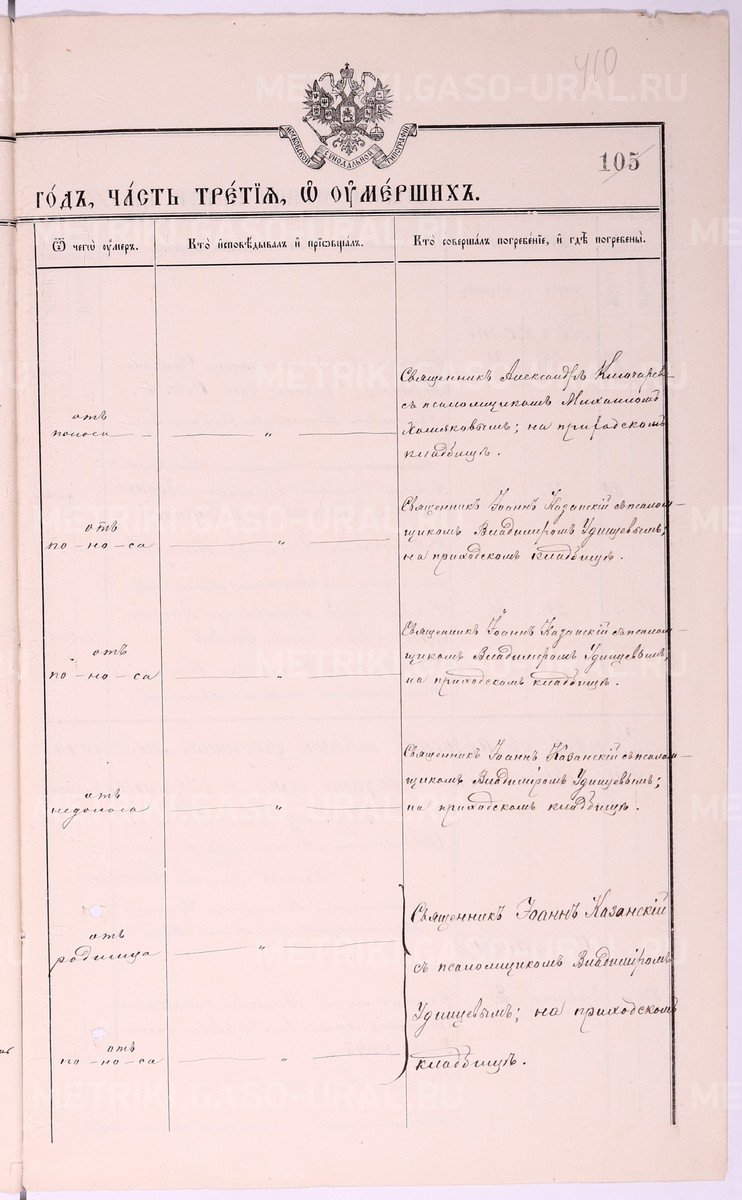 410
МОСКОВСКОЙ СѴНОДАЛЬНОЙ ТИПОГРАФІИ
105
ГО́ДЪ, ЧА́СТЬ ТРЕ́ТІѦ, Ѿ ОУ҆МЕ́РШИХЪ.
Ѿ чегѡ̀ оу҆́мер.
Кто̀ и҆сповѣ́дывалъ и҆ прїѡбща́лъ.
Кто̀ соверша́лъ погребе́нїе, и҆ гдѣ̀ погребены̀.
отъ
поноса
Священникъ Александръ Ключарев-
съ псаломщикомъ Михаиломъ
Хомяковымъ; на приходскомъ
кладбищѣ.
отъ
по-но-са
Священникъ Іоаннъ Казанскій съ псалом-
щикомъ Владиміромъ Удинцевымъ;
на приходскомъ кладбищѣ.
отъ
по-но-са
Священникъ Іоаннъ Казанскій съ псалом-
щикомъ Владиміромъ Удинцевымъ;
на приходскомъ кладбищѣ.
отъ
недоноса
Священникъ Іоаннъ Казанскій съ псалом-
щикомъ Владиміромъ Удинцевымъ;
на приходскомъ кладбищѣ.
отъ
родимца
Священникъ Іоаннъ Казанскій
съ псаломщикомъ Владиміромъ
Удинцевымъ; на приходскомъ
кладбищѣ.
отъ
по-но-са
METRIKI.GASO-URAL.RU